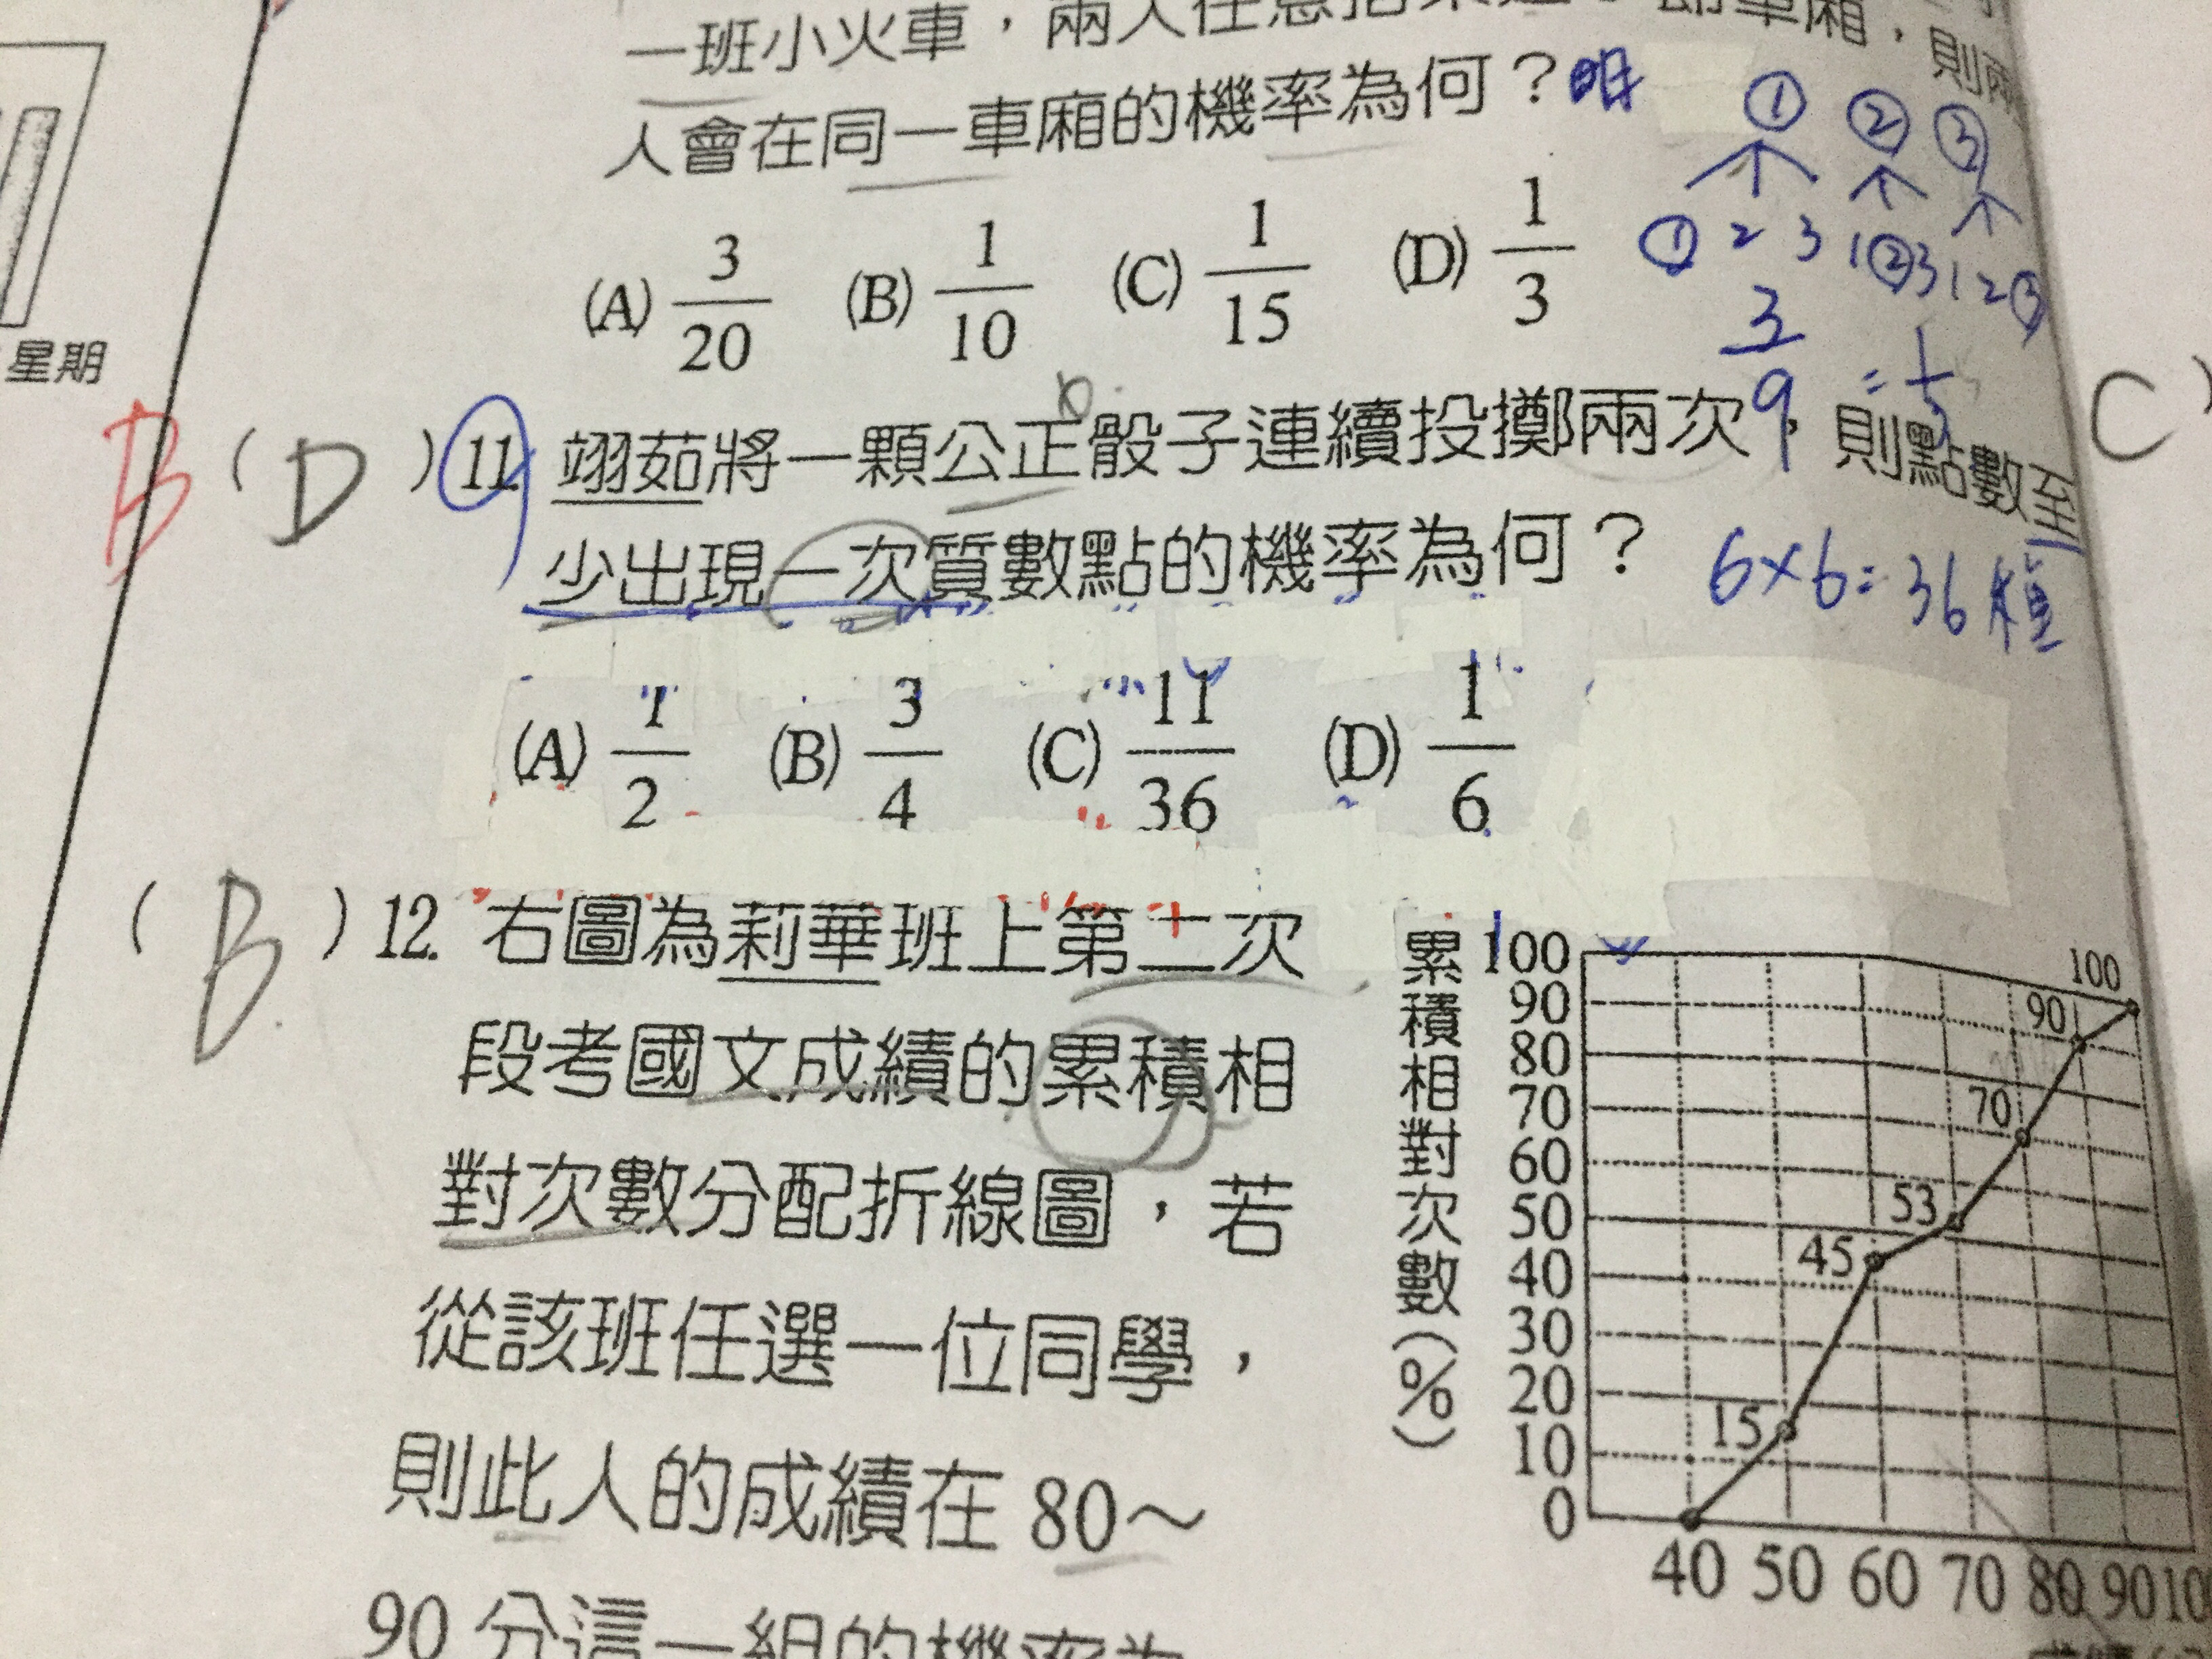 一班小火車，兩人任意搭乘這
車廂，則兩
人會在同一車廂的機率為何？
① ② ③
① 2 3 1 ② 3 1 2 ③
(A) 3/20 (B) 1/10 (C) 1/15 (D) 1/3
3/9 = 1/3
B ( D ) 11. 翊茹將一顆公正骰子連續投擲兩次，則點數至
少出現一次質數點的機率為何？
6×6=36種
(A) 1/2 (B) 3/4 (C) 11/36 (D) 1/6
( B ) 12. 右圖為莉華班上第二次
段考國文成績的累積相
對次數分配折線圖，若
從該班任選一位同學，
則此人的成績在 80～
90 分這一組的機率為
累積相對次數(%)
100
90
80
70
60
50
40
30
20
10
0
15
45
53
70
90
100
40 50 60 70 80 90 100
星期
C)